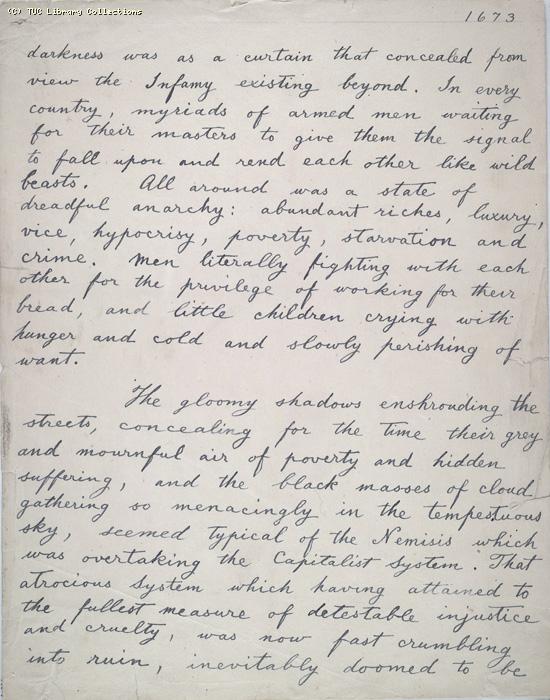 (C) TUC Library Collections
1673
darkness was as a curtain that concealed from
view the Infamy existing beyond. In every
country, myriads of armed men waiting
for their masters to give them the signal
to fall upon and rend each other like wild
beasts. All around was a state of
dreadful anarchy: abundant riches, luxury,
vice, hypocrisy, poverty, starvation and
crime. Men literally fighting with each
other for the privilege of working for their
bread, and little children crying with
hunger and cold and slowly perishing of
want.
The gloomy shadows enshrouding the
streets, concealing for the time their grey
and mournful air of poverty and hidden
suffering, and the black masses of cloud
gathering so menacingly in the tempestuous
sky, seemed typical of the Nemisis which
was overtaking the Capitalist System. That
atrocious System which having attained to
the fullest measure of detestable injustice
and cruelty, was now fast crumbling
into ruin, inevitably doomed to be